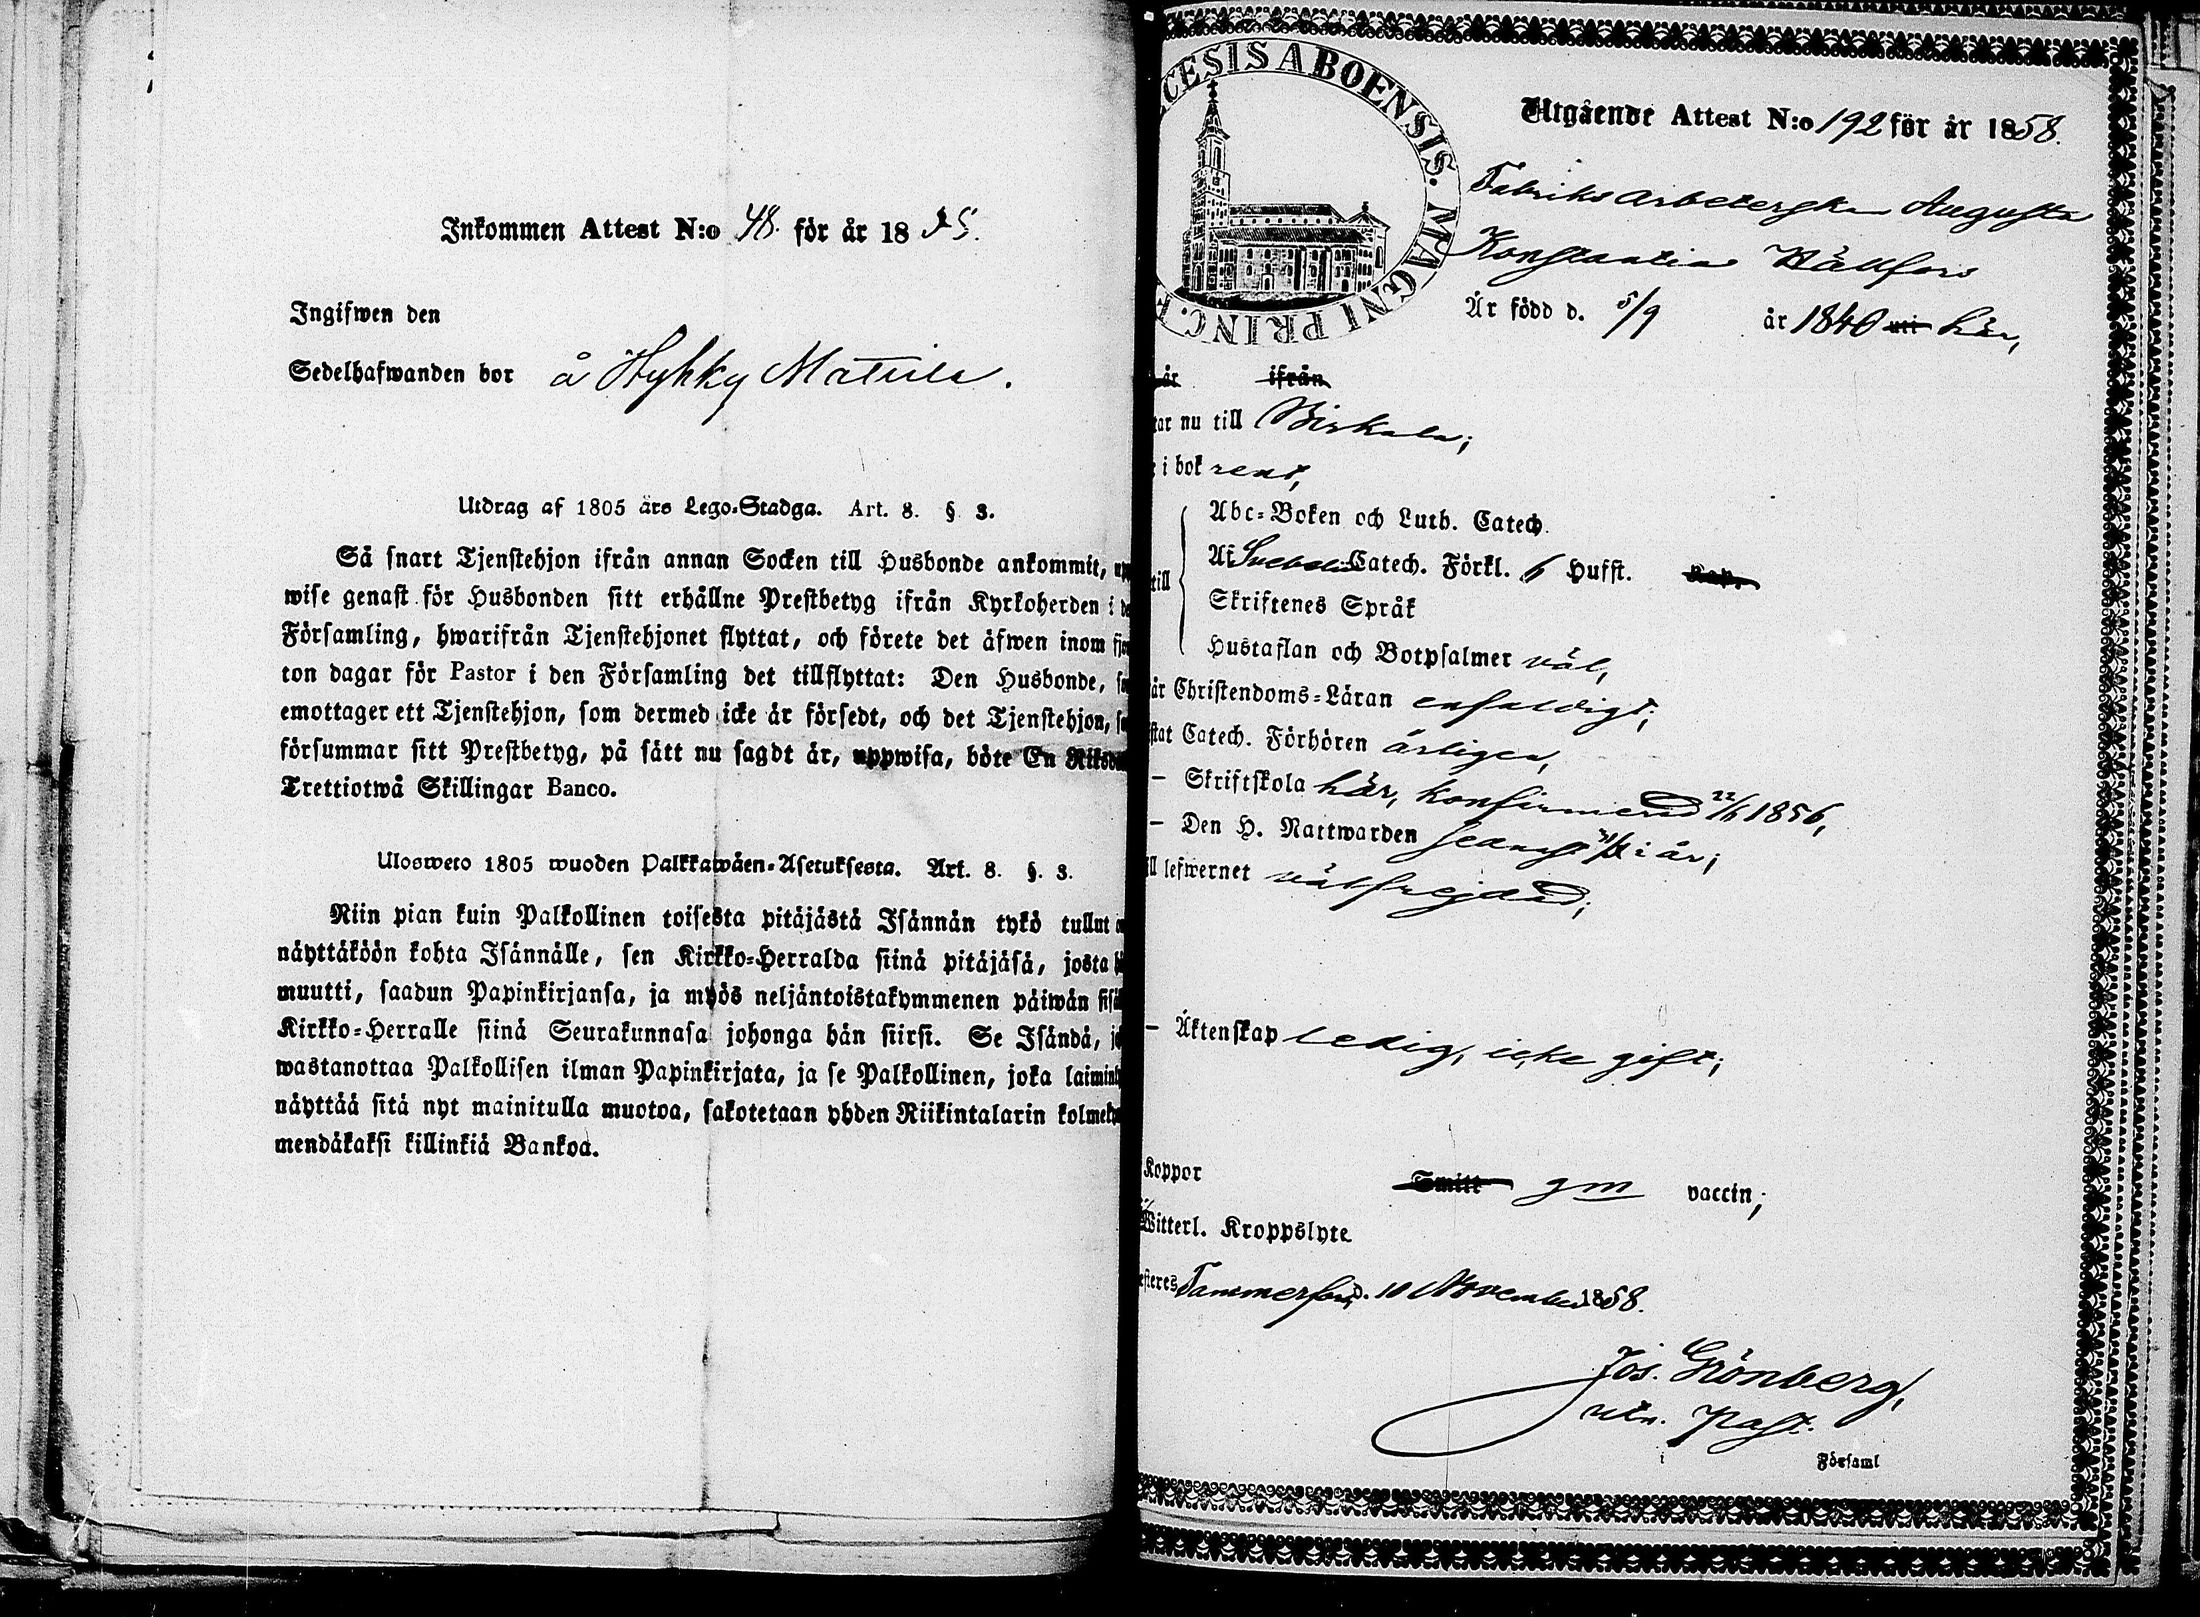 Inkommen Attest N:o 48. för år 18
Ingifwen den
Sedelhafwanden bor å Hyhky Mattila.
Utdrag af 1805 års Lego-Stadga. Art. 8. § 3.
Så snart Tjenstehjon ifrån annan Socken till Husbonde ankommit,
wise genast för Husbonden sitt erhållne Prestbetyg ifrån Kyrkoherden i
Församling, hwarifrån Tjenstehjonet flyttat, och förete det äfwen inom
ton dagar för Pastor i den Församling det tillflyttat: Den Husbonde,
emottager ett Tjenstehjon, som dermed icke är försedt, och det Tjenstehjon,
försummar sitt Prestbetyg, på sätt nu sagdt är, uppwisa, böte En
Trettiotwå Skillingar Banco.
Ulosweto 1805 wuoden Palkkawäen-Asetuksesta. Art. 8. §. 3.
Niin pian kuin Palkollinen toisesta pitäjästä Isännän tykö tullut
näyttäköön kohta Isännälle, sen Kirkko-Herralda siinä pitäjäsä, josta
muutti, saadun Papinkirjansa, ja myös neljäntoistakymmenen päiwän
Kirkko-Herralle siinä Seurakunnasa johonga hän siirsi. Se Isändä,
wastanottaa Palkollisen ilman Papinkirjata, ja se Palkollinen, joka
näyttää sitä nyt mainitulla muotoa, sakotetaan yhden Riikintalarin
mendäkaksi killinkiä Bankoa.
CESIS ABOENSIS. MAGNI PRINC. F
Utgående Attest N:o 192 för år 1858.
Fabriksarbeterskan Augusta
Konstantia Källfors
Är född d. 5/9 år 1840 uti här,
år ifrån
tar nu till Birkala;
i bok rent,
Abc-Boken och Luth. Catech.
Af Svebelii Catech. Förkl. 6 Hufst. Kap.
till
Skriftenes Språk
Hustaflan och Botpsalmer väl,
är Christendoms-Läran enfaldigt;
stat Catech. Förhören årligen,
— Skriftskola här, konfirmerad 22/6 1856,
— Den H. Nattwarden senast i år;
ll lefwernet välfrejdad;
— Äktenskap ledig, icke gift;
Koppor Smitt gm vaccin;
Witterl. Kroppslyte
esteres Tammerfors d. 10 November 1858.
Jos. Grönberg,
utn. Past.
i Församl